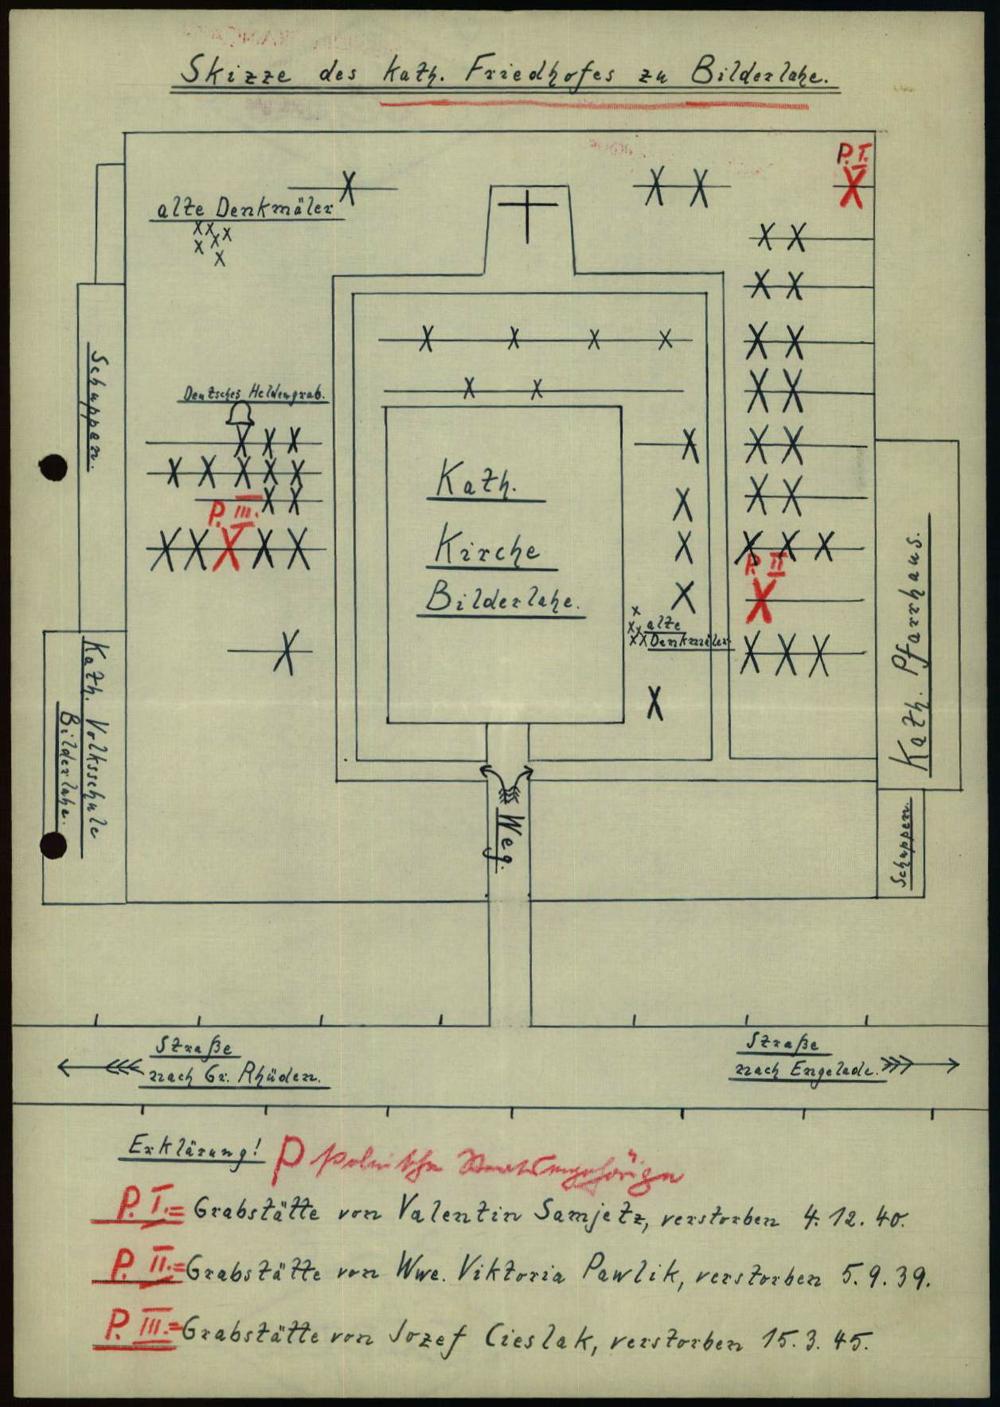 Skizze des kath. Friedhofes zu Bilderlahe.
P. I.
alte Denkmäler
Schuppen.
Deutsches Heldengrab.
P. III.
Kath.
Kirche
Bilderlahe.
P. II
alte
Denkmäler
Kath. Pfarrhaus.
Kath. Volksschule
Bilderlahe.
Weg.
Schuppen.
Straße
nach Gr. Rhüden.
Straße
nach Engelade.
Erklärung! P polnische Staatsangehörige
P. I. = Grabstätte von Valentin Samjetz, verstorben 4. 12. 40.
P. II. = Grabstätte von Wwe. Viktoria Pawlik, verstorben 5. 9. 39.
P. III. = Grabstätte von Jozef Cieslak, verstorben 15. 3. 45.